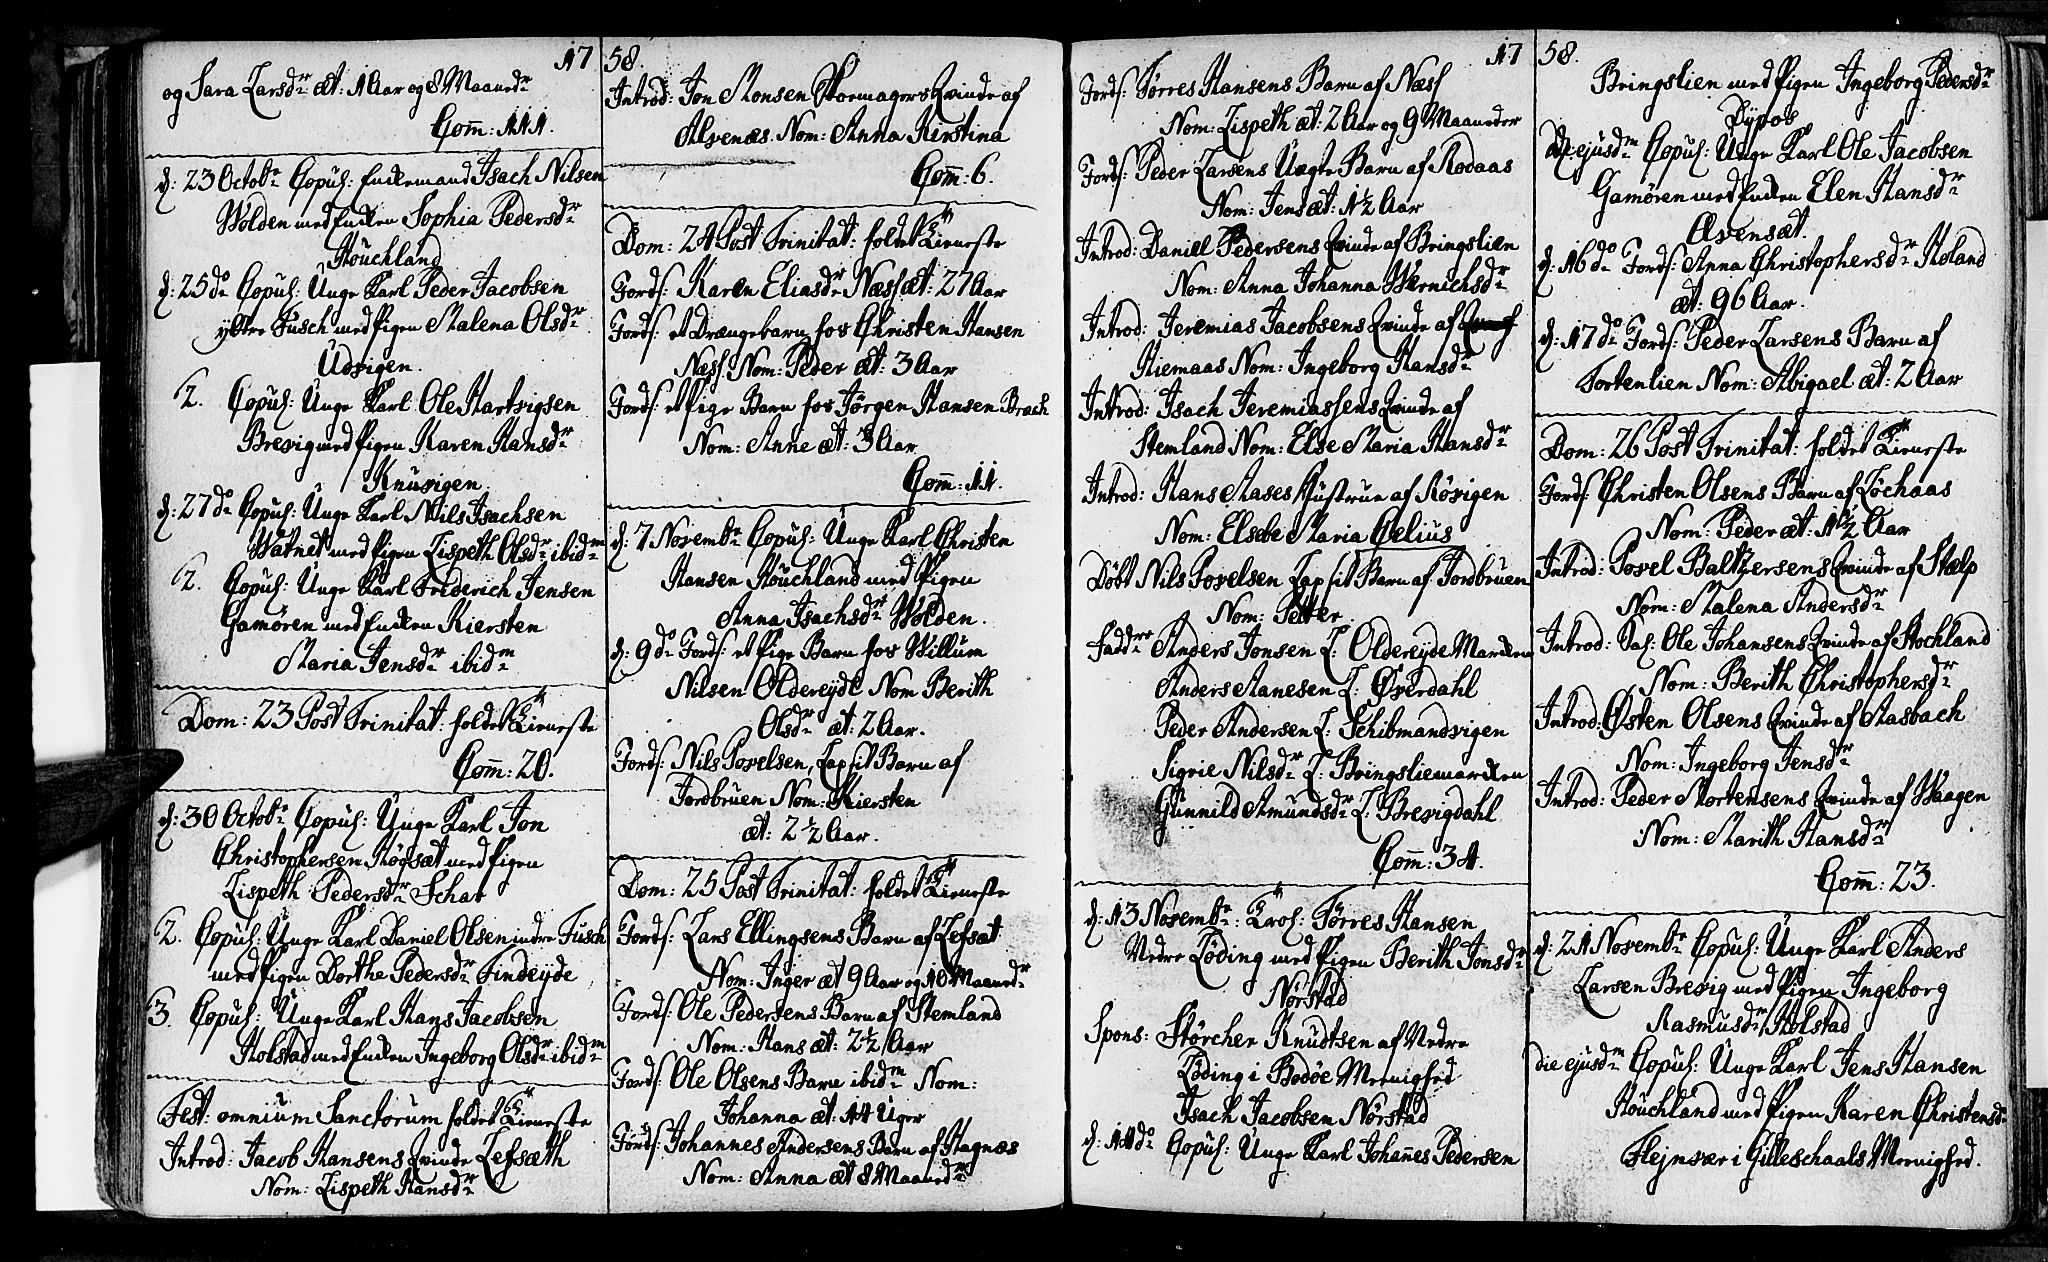 17
og Sara Larsdr æt: 1 Aar og 8 Maanedr
Com̄: 111.
d: 23 Octobr Copul: Enkemand Isach Nilsen
Wolden med Enken Sophia Pedersdr
Stöuchland
d: 25do Copul: Unge Karl Peder Jacobsen
yttre Fusch med Pigen Malena Olsdr
Udvigen.
2. Copul: Unge Karl Ole Hartvigsen
Brevig med Pigen Karen Hansdr
Knusvigen.
d: 27do Copul: Unge Karl Nils Isachsen
Watnet med Pigen Lispeth Olsdr ibidm
2. Copul: Unge Karl Friderich Jensen
Gamøren med Enken Kiersten
Maria Jensdr ibidm
Dom: 23 Post Trinitat: holdet Tieneste
Com̄: 20.
d: 30 Octobr Copul: Unge Karl Jon
Christophersen Høgsæt med Pigen
Lispeth Pedersdr Schar
2. Copul: Unge Karl Daniel Olsen indre Fusch
med Pigen Dorthe Pedersdr Findeyde
3. Copul: Unge Karl Hans Jacobsen
Holstad med Enken Ingeborg Olsdr ibidm
Fest: omnium Sanctorum holdet Tieneste
Introd: Jacob Hansens Qvinde Lefsæth
Nom: Lispeth Hansdr
58.
Introd: Jon Monsen Skomagers Qvinde af
Alvenæs. Nom: Anna Kirstina
Com̄: 6.
Dom: 24 Post Trinitat: holdet Tieneste
Fords: Karen Eliasdr Næss æt: 27 Aar
Fords: et Drængebarn for Christen Hansen
Næss. Nom: Peder æt: 3 Aar
Fords: et Pige Barn for Jørgen Hansen Brach
Nom: Anne æt: 3 Aar
Com̄: 11.
d: 7 Novembr Copul: Unge Karl Christen
Hansen Stöuchland med Pigen
Anna Isachsdr Wolden.
d: 9do Fords: et Pige Barn for Willum
Nilsen Oldereyde Nom Berith
Olsdr æt: 2 Aar.
Fords: Nils Povelsen, Lap sit Barn af
Jordbruen Nom: Kiersten
æt: 2 1/2 Aar.
Dom: 25 Post Trinitat: holdet Tieneste
Fords: Lars Ellingsens Barn af Lefsæt
Nom: Inger æt 9 Aar og 10 Maanedr
Fords: Ole Pedersens Barn af Stemland
Nom: Hans æt: 2 1/2 Aar
Fords: Ole Olsens Barn ibidm Nom:
Johanna æt: 14 Uger
Fords: Johannes Andersens Barn af Hagnæs
Nom: Anna æt 8 Maanedr
17
Fords: Törres Hansens Barn af Næss
Nom: Lispeth æt: 2 Aar og 9 Maaneder
Fords: Peder Larsens Uægte Barn af Rødaas
Nom: Jens æt: 1 1/2 Aar
Introd: Daniel Pedersens Qvinde af Bringslien
Nom: Anna Johanna Wernichsdr
Introd: Jeremias Jacobsens Qvinde af
Kiemaas Nom: Ingeborg Hansdr
Introd: Isach Jeremiassens Qvinde af
Stemland Nom: Else Maria Hansdr
Introd: Hans Aases Hustrue af Røsvigen
Nom: Elsebe Maria Celius
Döbt Nils Povelsen Lap sit Barn af Jordbruen
Nom: Petter
Faddre Anders Jonsen L: Oldereyde Marcken
Anders Aanesen L: Øverdahl
Peder Andersen L: Schibmandvigen
Sigrie Nilsdr L: Bringsliemarcken
Gunnild Amundsdr L: Brevigdahl
Com̄: 34.
d: 13 Novembr: Trol: Törres Hansen
Nedre Löding med Pigen Berith Jonsdr
Nørstad
Spons: Störcher Knudtsen af Nedre
Löding i Bodöe Meenighed
Isach Jacobsen Nørstad
d: 14do Copul: Unge Karl Johannes Pedersen
58.
Bringslien med Pigen Ingeborg Pedersdr
Dypos
Die ejusdm Copul: Unge Karl Ole Jacobsen
Gamøren med Enken Elen Hansdr
Evensæt.
d: 16do Fords: Anna Christophersdr Røland
æt: 96 Aar.
d: 17do Fords: Peder Larsens Barn af
Tortenlien Nom: Abigael æt: 2 Aar
Dom: 26 Post Trinitat: holdet Tieneste
Fords: Christen Olsens Barn af Löchaas
Nom: Peder æt: 1 1/2 Aar
Introd: Povel Baltzersens Qvinde af Stølp
Nom: Malena Andersdr
Introd: Sal: Ole Johansens Qvinde af Stochland
Nom: Berith Christophersdr
Introd: Østen Olsens Qvinde af Aasbach
Nom: Ingeborg Jensdr
Introd: Peder Mortensens Qvinde af Waagen
Nom: Marith Hansdr
Com̄: 23.
d: 21 Novembr Copul: Unge Karl Anders
Larsen Brevig med Pigen Ingeborg
Rasmusdr Holstad
die ejusdm Copul: Unge Karl Jens Hansen
Stöuchland med Pigen Karen Christensdr
Flejnvær i Gilleschaals Meenighed.